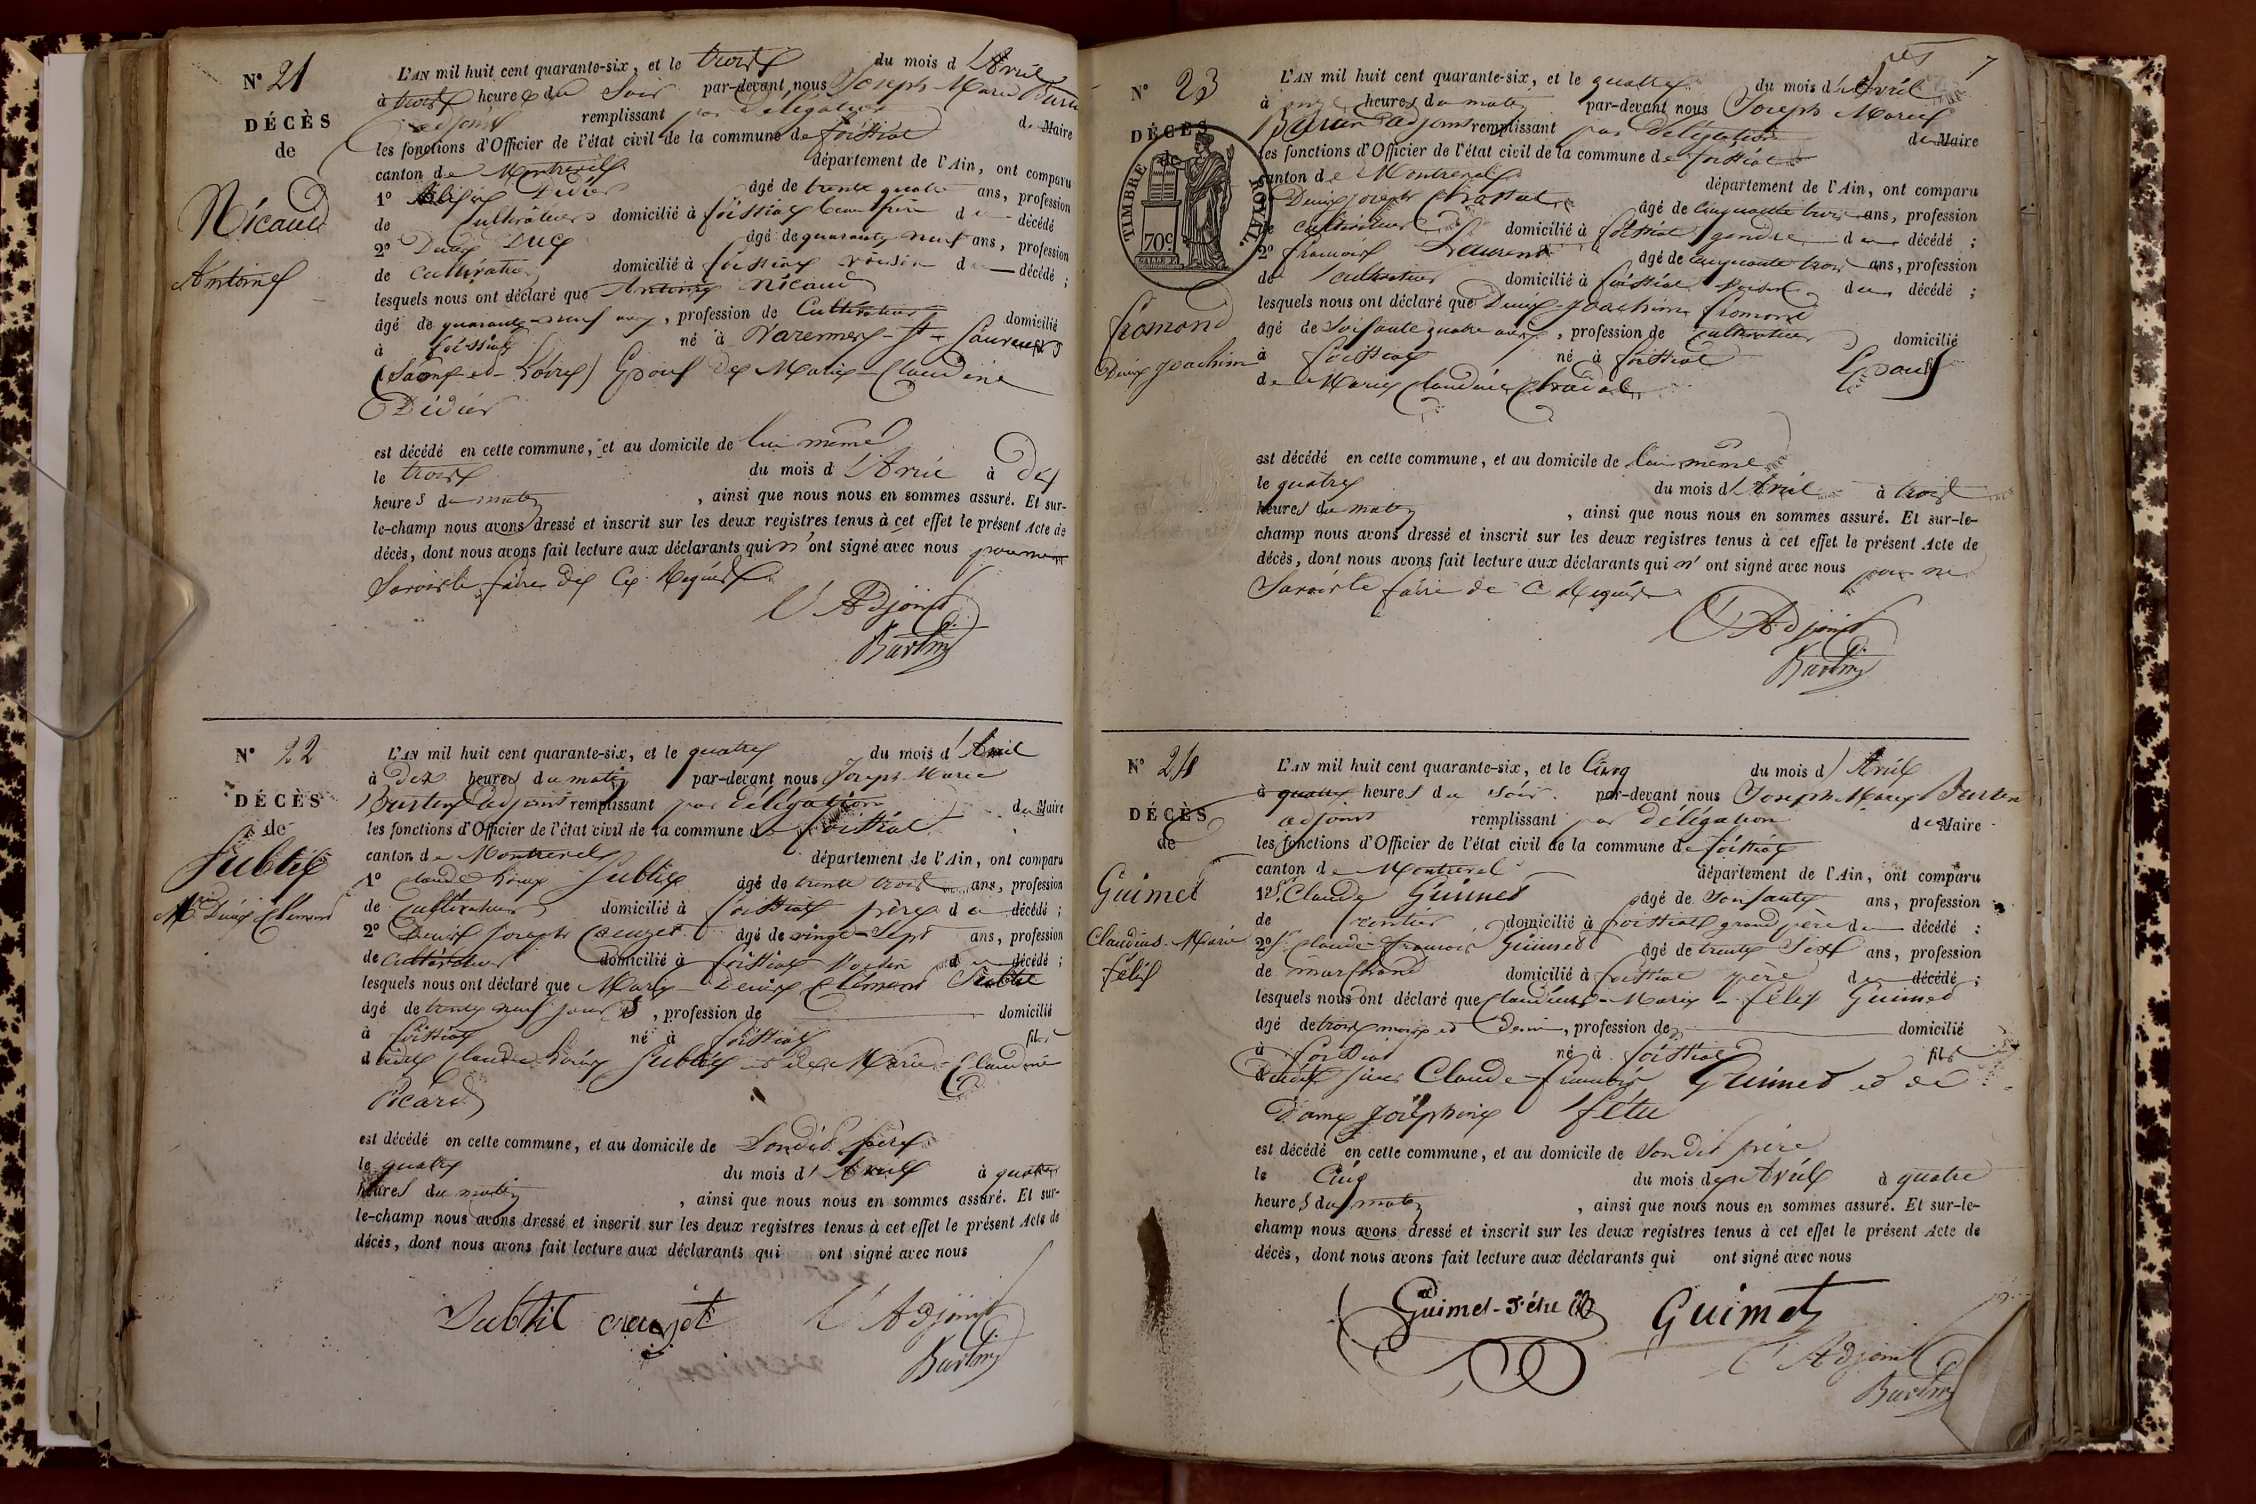 N° 21
DÉCÈS
de
Nicaud
Antoine
L'AN mil huit cent quarante-six, et le trois du mois d'Avril
à trois heures du Soir par-devant nous Joseph Marie Burtin
adjoint remplissant par Délégation de Maire
les fonctions d'Officier de l'état civil de la commune de foissiat
canton de Montrevel département de l'Ain, ont comparu
1° Didier âgé de trente quatre ans, profession
de Cultivateur domicilié à foissiat beau frère du décédé
2° Duc âgé de quarante neuf ans, profession
de cultivateur domicilié à foissiat voisin du décédé ;
lesquels nous ont déclaré que Antoine Nicaud
âgé de quarante neuf ans, profession de Cultivateur domicilié
à foissiat né à Varennes-St-Sauveur
(Saone et Loire) Epoux de Marie Claudine
Didier
est décédé en cette commune, et au domicile de lui même
le trois du mois d'Avril à Dix
heures du matin, ainsi que nous nous en sommes assuré. Et sur-
le-champ nous avons dressé et inscrit sur les deux registres tenus à cet effet le présent Acte de
décès, dont nous avons fait lecture aux déclarants qui n'ont signé avec nous pour ne
Savoir le faire de ce Requis
L'Adjoint
Burtin
N° 22
DÉCÈS
de
Subtil
Mie Denis Clément
L'AN mil huit cent quarante-six, et le quatre du mois d'Avril
à Dix heures du matin par-devant nous Joseph Marie
Burtin adjoint remplissant par Délégation de Maire
les fonctions d'Officier de l'état civil de la commune de foissiat
canton de Montrevel département de l'Ain, ont comparu
1° Claude Subtil âgé de trente trois ans, profession
de Cultivateur domicilié à foissiat père du décédé ;
2° Denis Joseph Creuzet âgé de vingt-Sept ans, profession
de Cultivateur domicilié à foissiat voisin du décédé ;
lesquels nous ont déclaré que Marie Denis Clément Subtil
âgé de trente neuf jours, profession de domicilié
à foissiat né à foissiat fils
Claude Subtil et de Marie Claudine
Picard
est décédé en cette commune, et au domicile de Sondit père
le quatre du mois d'Avril à quatre
heures du matin, ainsi que nous nous en sommes assuré. Et sur-
le-champ nous avons dressé et inscrit sur les deux registres tenus à cet effet le présent Acte de
décès, dont nous avons fait lecture aux déclarants qui ont signé avec nous
Subtil L'Adjoint
Burtin
7
N° 23
DÉCÈS
de
TIMBRE ROYAL
70c
fromond
Denis Joachim
L'AN mil huit cent quarante-six, et le quatre du mois d'Avril
à onze heures du matin par-devant nous Joseph Marie
Burtin adjoint remplissant par Délégation de Maire
les fonctions d'Officier de l'état civil de la commune de foissiat
canton de Montrevel département de l'Ain, ont comparu
Denis Joseph âgé de cinquante trois ans, profession
de cultivateur domicilié à foissiat gendre du décédé ;
2° françois Laurent âgé de cinquante trois ans, profession
de cultivateur domicilié à foissiat voisin du décédé ;
lesquels nous ont déclaré que Denis Joachim fromond
âgé de Soixante quatre ans, profession de cultivateur domicilié
à foissiat né à foissiat Epoux
de Marie Claudine
est décédé en cette commune, et au domicile de lui même
le quatre du mois d'Avril à trois
heures du matin, ainsi que nous nous en sommes assuré. Et sur-le-
champ nous avons dressé et inscrit sur les deux registres tenus à cet effet le présent Acte de
décès, dont nous avons fait lecture aux déclarants qui n'ont signé avec nous pour ne
Savoir le faire de ce Requis
L'Adjoint
Burtin
N° 24
DÉCÈS
de
Guimet
Claudius Marie
félix
L'AN mil huit cent quarante-six, et le Cinq du mois d'Avril
à quatre heures du soir par-devant nous Joseph Marie Burtin
adjoint remplissant par Délégation de Maire
les fonctions d'Officier de l'état civil de la commune de foissiat
canton de Montrevel département de l'Ain, ont comparu
1° Claude Guimet âgé de Soixante ans, profession
de rentier domicilié à foissiat grand père du décédé ;
2° Claude françois Guimet âgé de trente Six ans, profession
de marchand domicilié à foissiat père du décédé ;
lesquels nous ont déclaré que Claudius Marie félix Guimet
âgé de trois mois et demi, profession de domicilié
à foissiat né à foissiat fils
Claude françois Guimet et de
Dame Joséphine fétu
est décédé en cette commune, et au domicile de Sondit père
le Cinq du mois de Avril à quatre
heures du matin, ainsi que nous nous en sommes assuré. Et sur-le-
champ nous avons dressé et inscrit sur les deux registres tenus à cet effet le présent Acte de
décès, dont nous avons fait lecture aux déclarants qui ont signé avec nous
Guimet-Fétu Guimet
L'Adjoint
Burtin